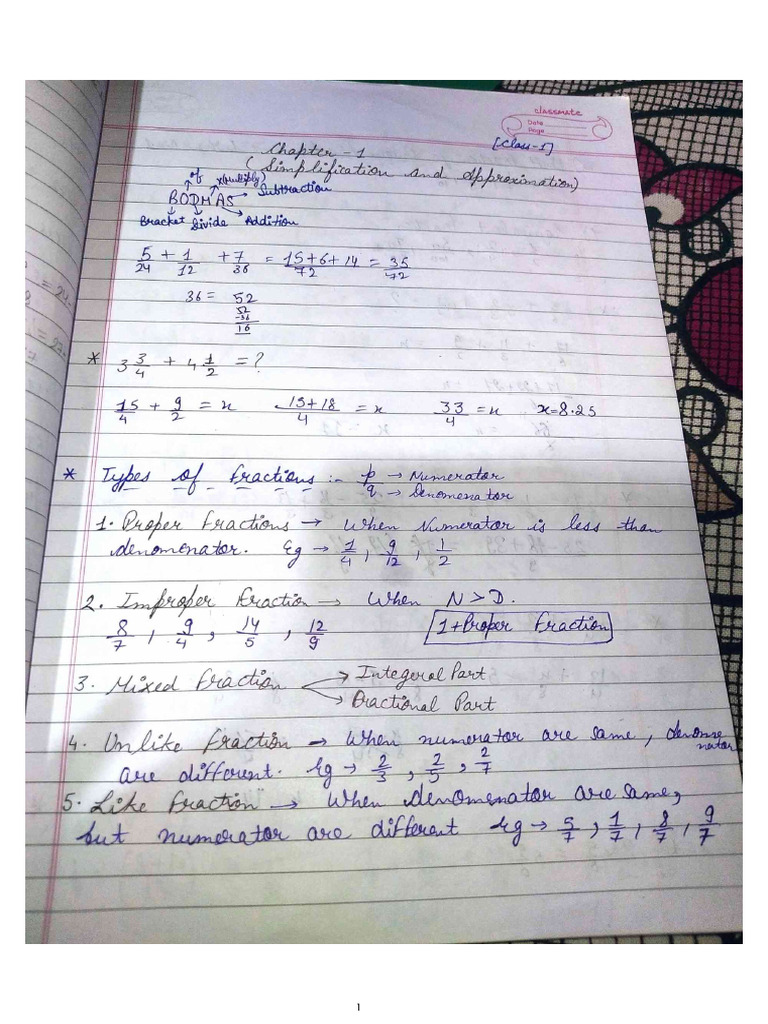 classmate
Date
Page
[Class-1]
Chapter-1
(Simplification and Approximation)
of x(multiply) Subtraction
BODMAS
Bracket Divide Addition
5/24 + 1/12 + 7/36 = 15+6+14/72 = 35/72
36 = 52
52
-36
16
* 3 3/4 + 4 1/2 = ?
15/4 + 9/2 = x 15+18/4 = x 33/4 = x x=8.25
* Types of Fractions :- p/q → Numerator
→ Denomenator
1. Proper Fractions → When Numerator is less than
denomenator. Eg → 1/4, 9/12, 1/2
2. Improper Fraction → When N>D.
8/7, 9/4, 14/5, 12/9 1+Proper Fraction
3. Mixed Fraction → Integeral Part
→ Fractional Part
4. Unlike Fraction → When numerator are same, denomenator
are different. Eg → 2/3, 2/5, 2/7
5. Like Fraction → When denomenator are same,
but numerator are different Eg → 5/7, 1/7, 8/7, 9/7
1